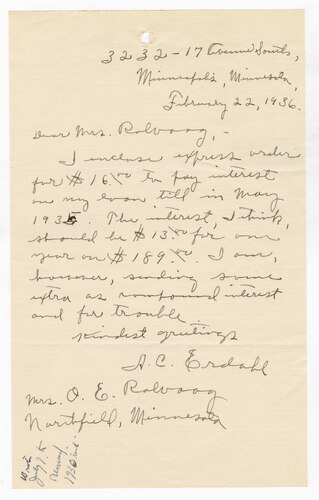 3232-17 Avenue South,
Minneapolis, Minnesota,
February 22, 1936.
Dear Mrs. Rolvaag,-
I enclose express order
for $16.00 to pay interest
on my loan till in May
1935. The interest, I think,
should be $13.00 for one
year on $189.00. I am,
however, sending some
extra as compound interest
and for trouble.
Kindest greetings
A. C. Erdahl
Mrs. O. E. Rolvaag
Northfield, Minnesota
July 1. 5
1936